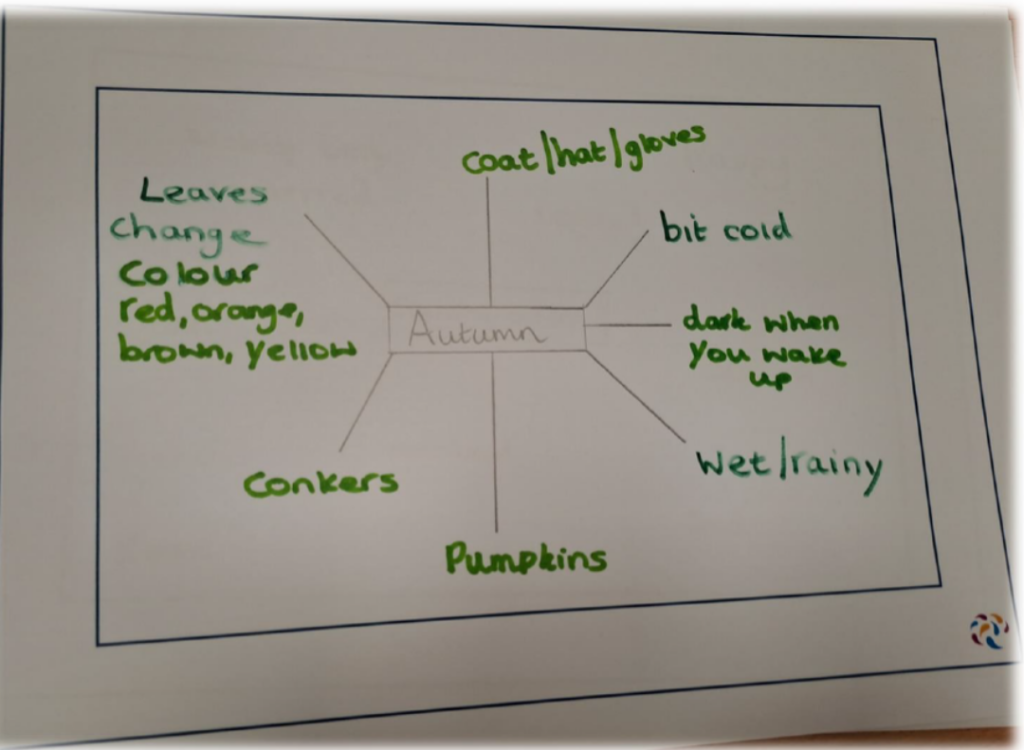 coat/hat/gloves
Leaves
change
Colour
red, orange,
brown, yellow
bit cold
Autumn
dark when
you wake
up
wet/rainy
Conkers
Pumpkins